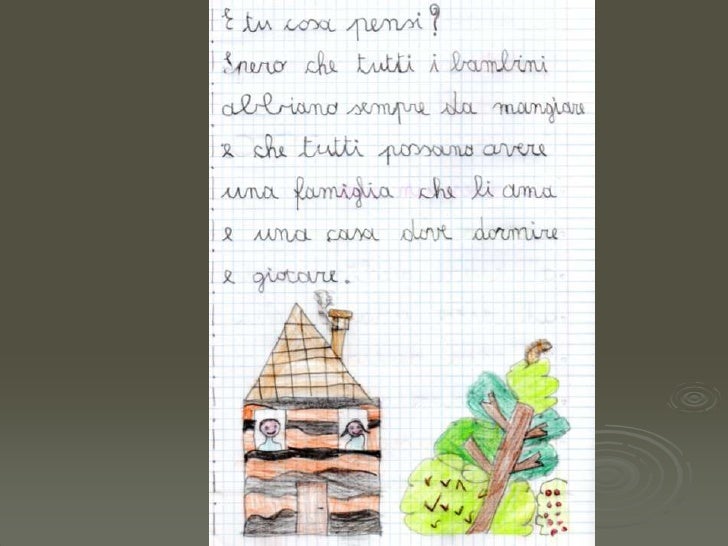 E tu cosa pensi?
Spero che tutti i bambini
abbiano sempre da mangiare
e che tutti possano avere
una famiglia che li ama
e una casa dove dormire
e giocare.